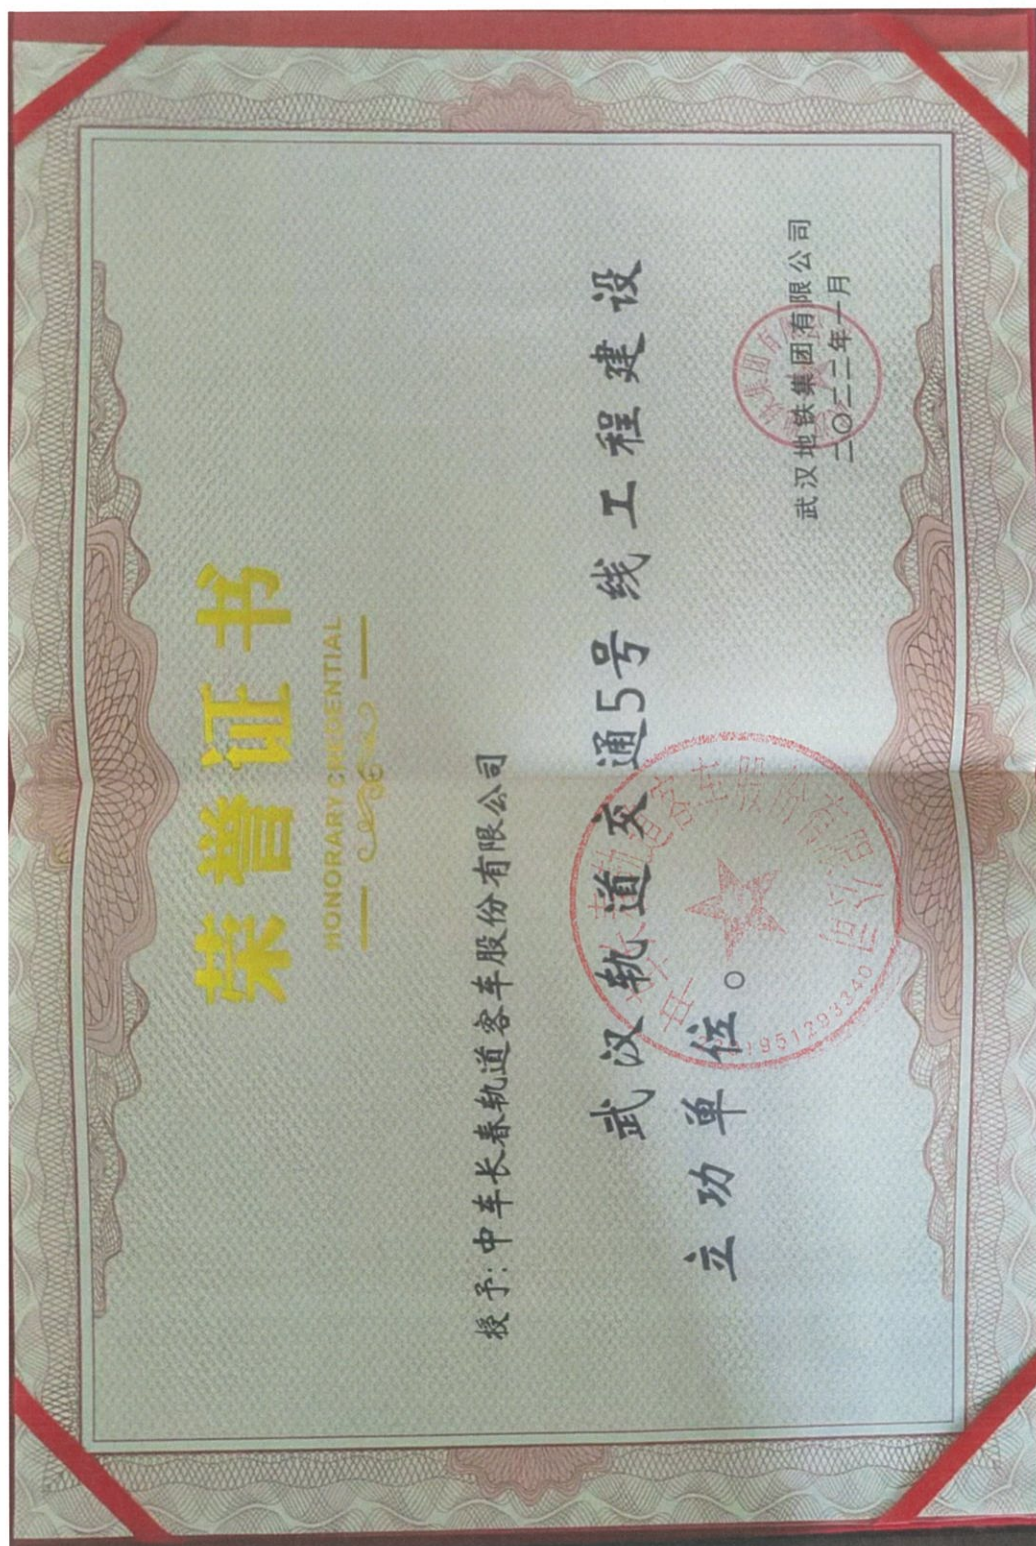 荣誉证书
HONORARY CREDENTIAL
授予：中车长春轨道客车股份有限公司
武汉轨道交通5号线工程建设
立功单位。
武汉地铁集团有限公司
二〇二二年一月